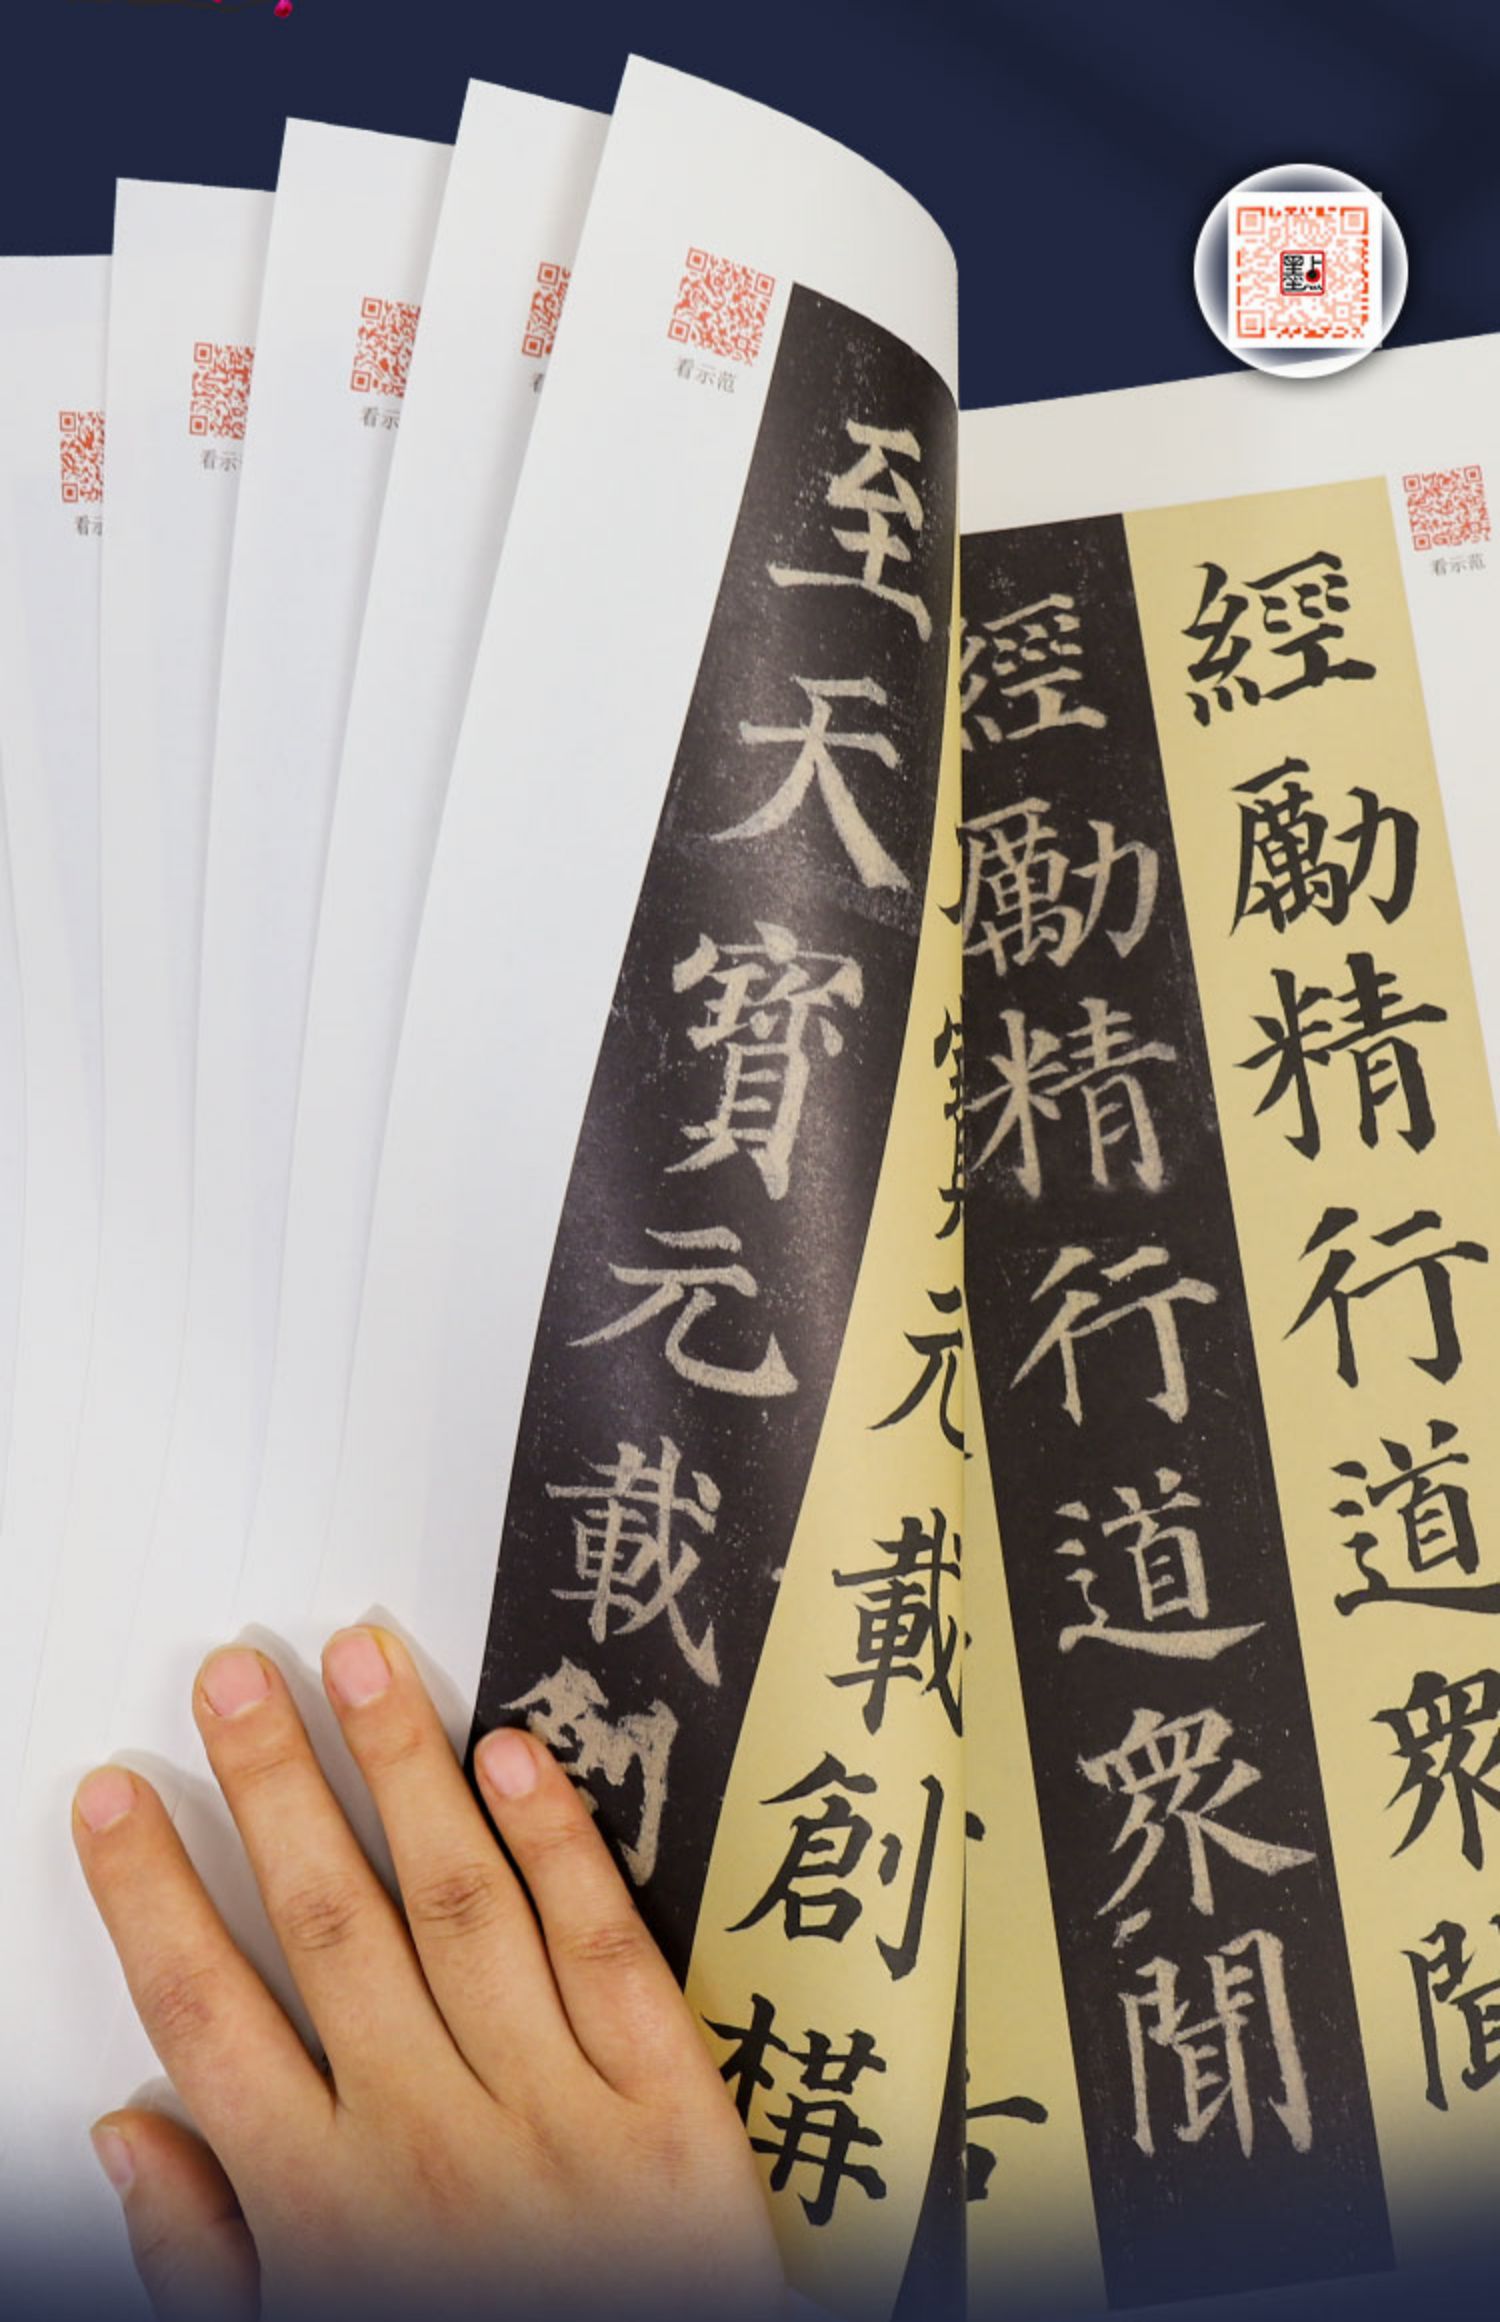 墨点
看示
看示
看示
看
看示范
至天寶元載創
元載創構
經勵精行道衆聞
看示范
經勵精行道衆聞